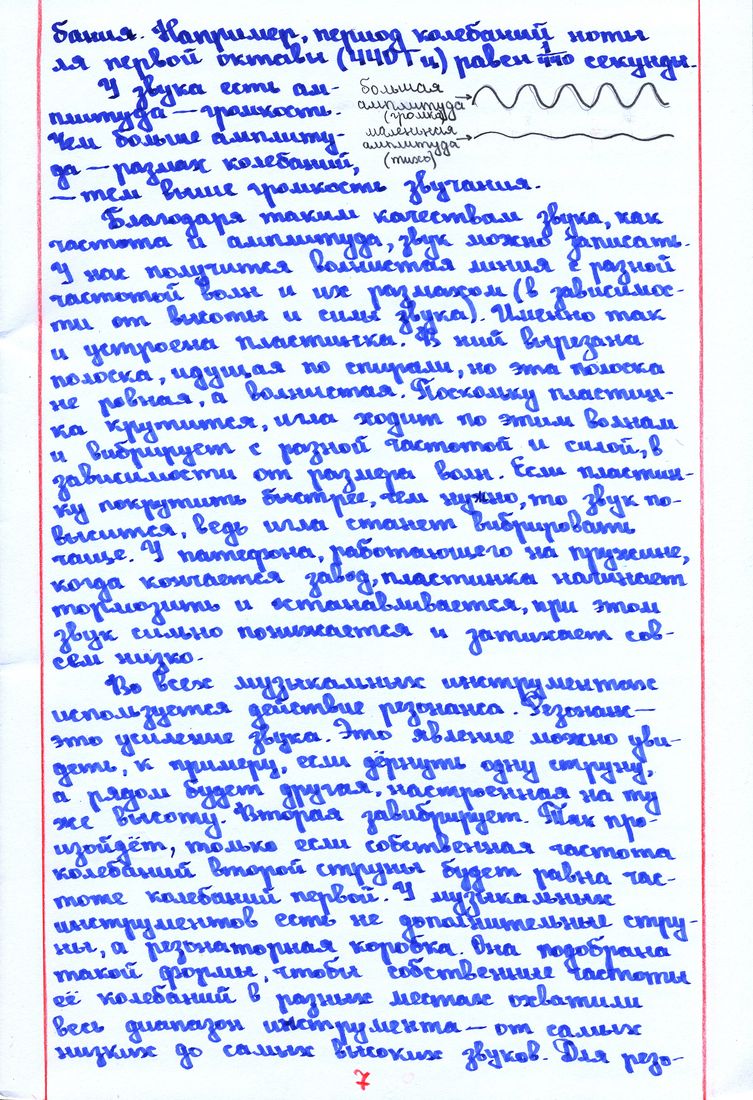 бания. Например, период колебаний ноты
ля первой октавы (440Гц) равен 1/440 секунды.
У звука есть ам-
плитуда — громкость.
Чем больше амплиту-
да — размах колебаний,
— тем выше громкость звучания.
большая
амплитуда
(громко)
маленькая
амплитуда
(тихо)
Благодаря таким качествам звука, как
частота и амплитуда, звук можно записать.
У нас получится волнистая линия с разной
частотой волн и их размахом (в зависимос-
ти от высоты и силы звука). Именно так
и устроена пластинка. В ней вырезана
полоска, идущая по спирали, но эта полоска
не ровная, а волнистая. Поскольку пластин-
ка крутится, игла ходит по этим волнам
и вибрирует с разной частотой и силой, в
зависимости от размера волн. Если пластин-
ку покрутить быстрее, чем нужно, то звук по-
высится, ведь игла станет вибрировать
чаще. У патефона, работающего на пружине,
когда кончается завод, пластинка начинает
тормозить и останавливается, при этом
звук сильно понижается и затихает сов-
сем низко.
Во всех музыкальных инструментах
используется действие резонанса. Резонанс —
это усиление звука. Это явление можно уви-
деть, к примеру, если дёрнуть одну струну,
а рядом будет другая, настроенная на ту
же высоту. Вторая завибрирует. Так про-
изойдёт, только если собственная частота
колебаний второй струны будет равна час-
тоте колебаний первой. У музыкальных
инструментов есть не дополнительные стру-
ны, а резонаторная коробка. Она подобрана
такой формы, чтобы собственные частоты
её колебаний в разных местах охватили
весь диапазон инструмента — от самых
низких до самых высоких звуков. Для резо-
7